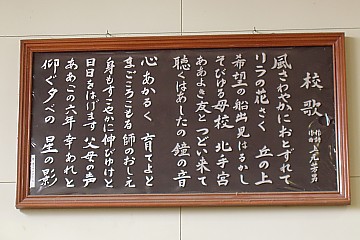 校歌
風さわやかにおとずれて
リラの花さく 丘の上
希望の船出見はるかし
そびゆる母校 北手宮
ああよき友と つどい来て
聴くはあしたの 鐘の音
心あかるく 育てよと
まごころこもる 師のおしえ
身もすこやかに 伸びゆけと
日日をはげます 父母の声
ああこの六年 幸あれと
仰ぐ夕べの 星の影